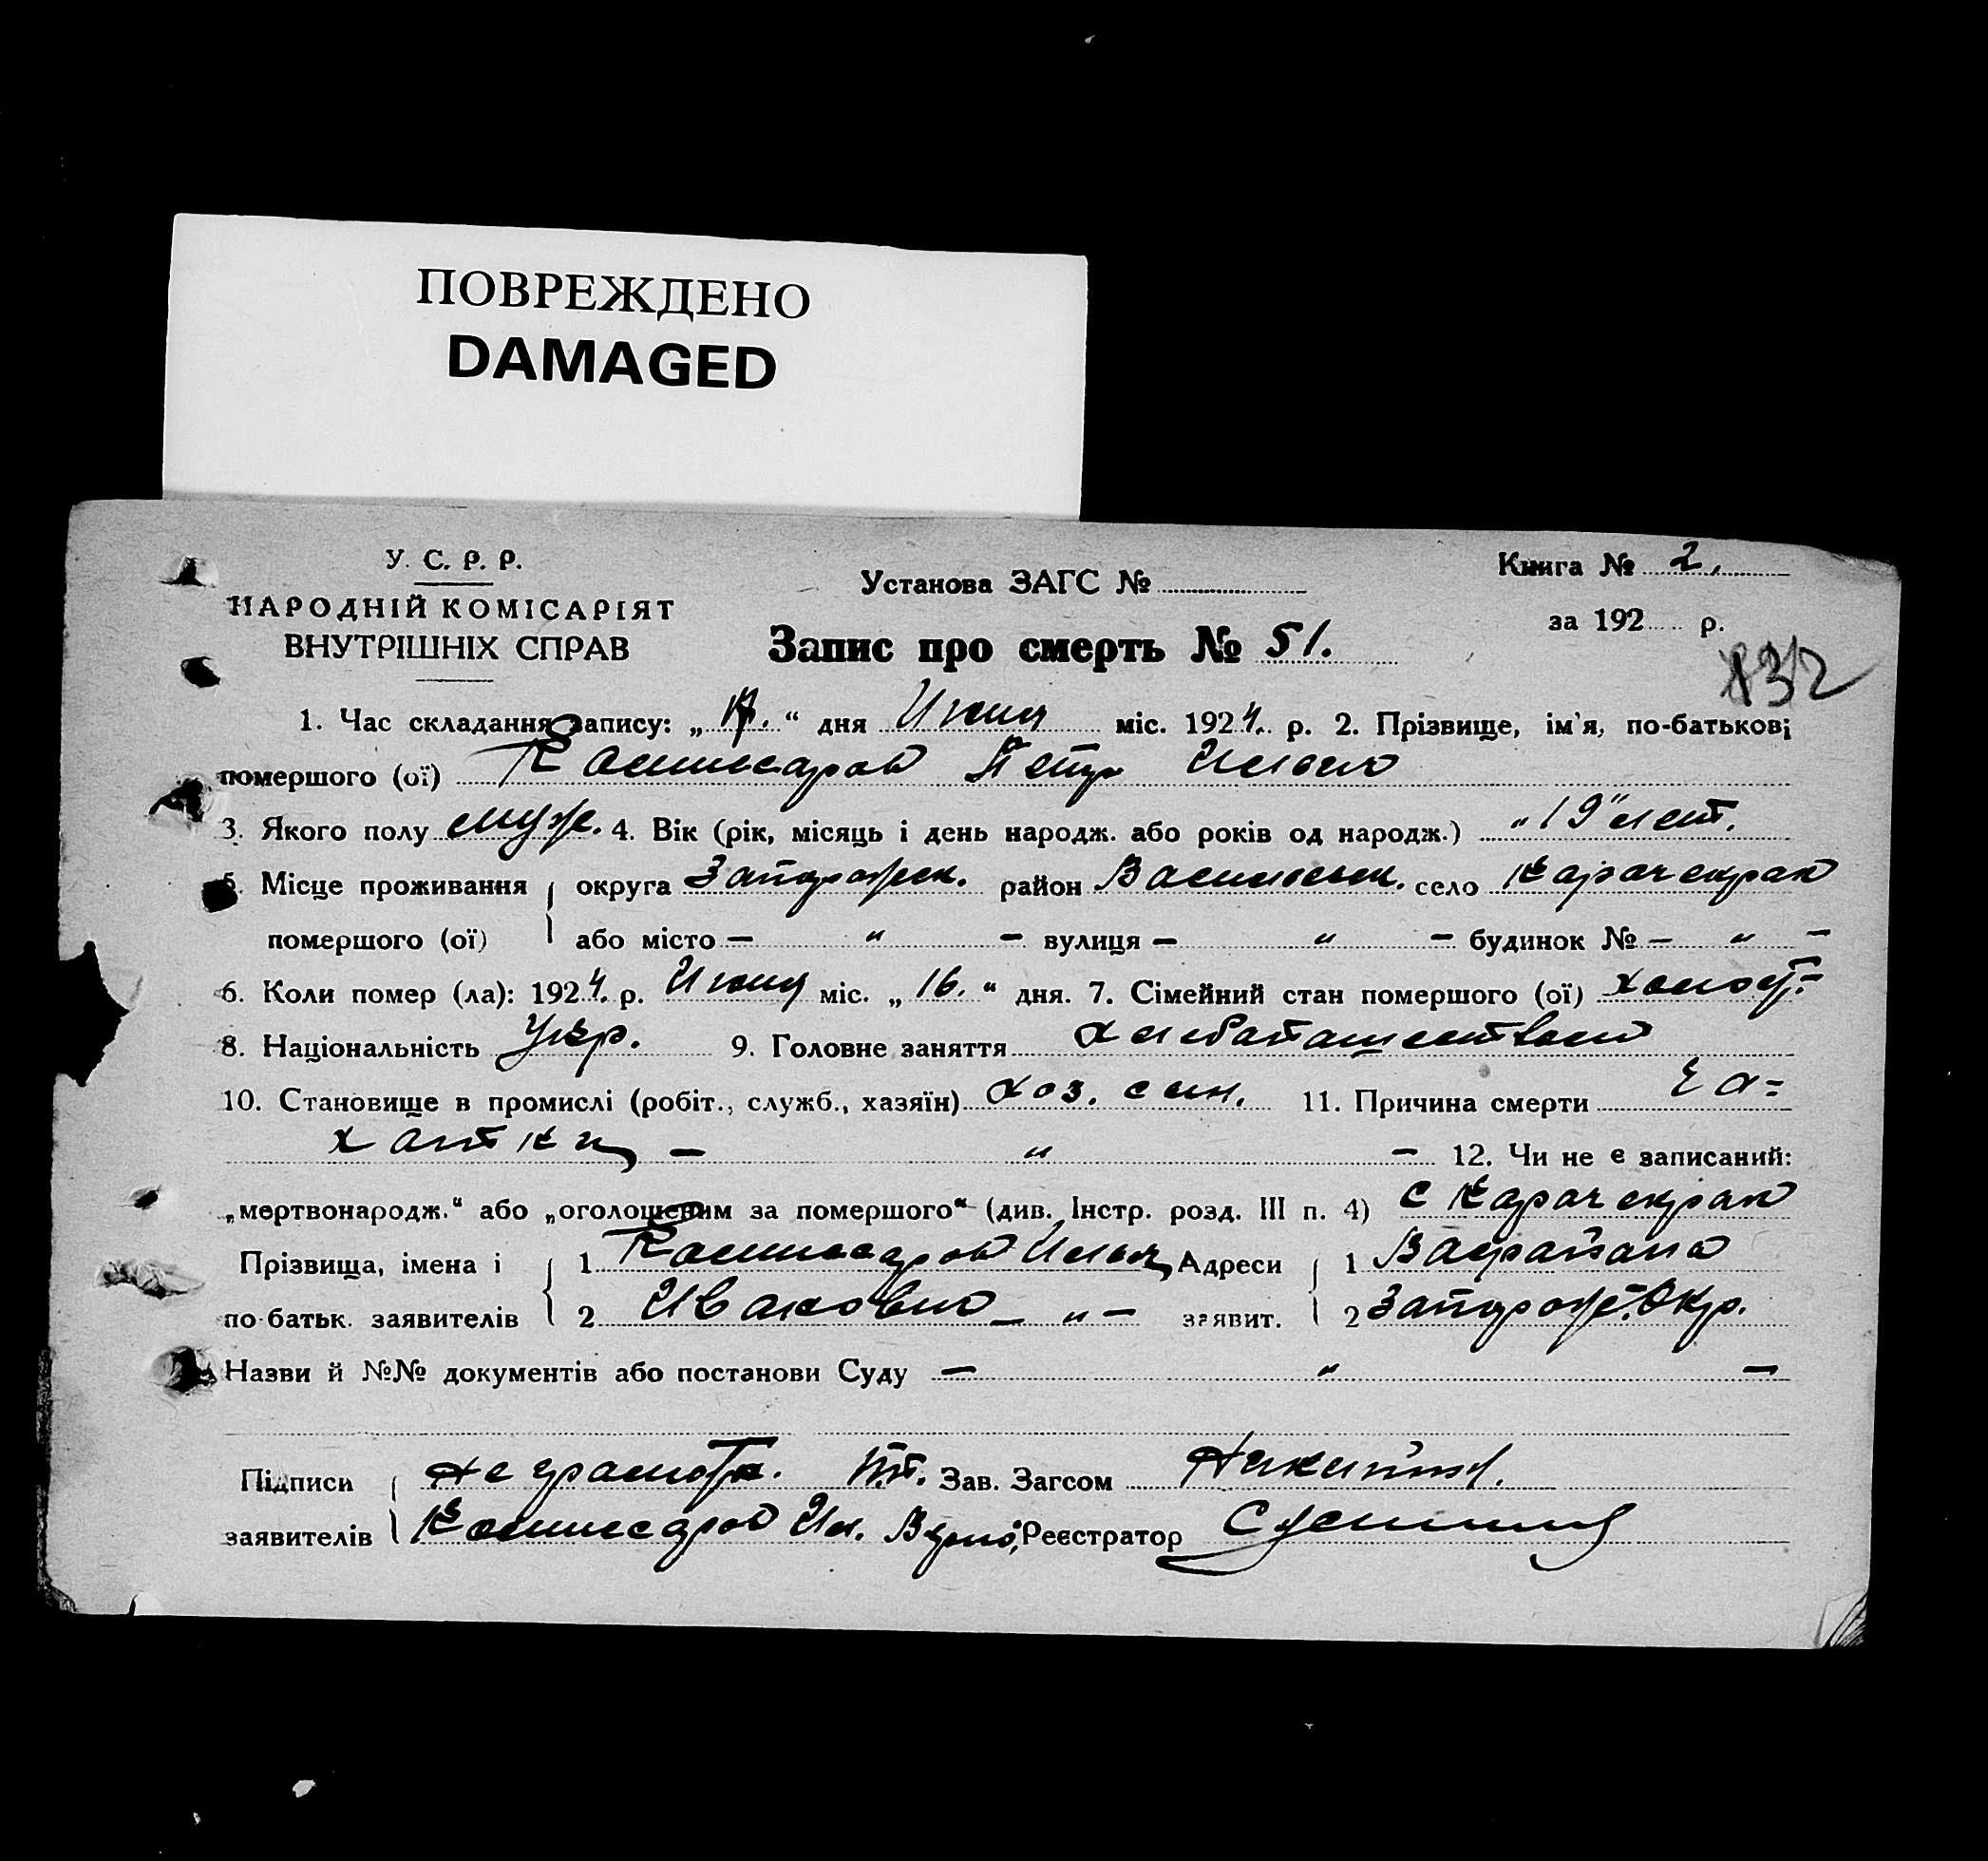 ПОВРЕЖДЕНО
DAMAGED
У. С. Р. Р.
НАРОДНІЙ КОМІСАРІЯТ
ВНУТРІШНІХ СПРАВ
Установа ЗАГС №
Книга № 2.
за 192 р.
Запис про смерть № 51.
832
1. Час складання запису: „ “ дня Июня міс. 1924. р. 2. Прізвище, ім'я, по-батькові
помершого (ої) Коммисаров Петр Ильич
3. Якого полу муж. 4. Вік (рік, місяць і день народж. або років од народж.) „19" лет.
5. Місце проживання округа Запорожск. район Васильевск. село Карачекрак
помершого (ої) або місто — " — вулиця — " — будинок № — " —
6. Коли помер (ла): 1924. р. Июня міс. „16.“ дня. 7. Сімейний стан помершого (ої) холост.
8. Національність Укр. 9. Головне заняття Хлебопашеством
10. Становище в промислі (робіт., служб., хазяїн) хоз. сын. 11. Причина смерти Ча=
хотки — " — 12. Чи не є записаний:
„мертвонародж.“ або „оголошеним за помершого“ (див. Інстр. розд. III п. 4) С Карачекрак
Прізвища, імена і 1 Коммисаров Илья Адреси 1 Вас. района
по-батьк. заявителів 2 Иванович — " — заявит. 2 Запорож. Окр.
Назви й №№ документів або постанови Суду — " —
Підписи Не грамотн. Зав. Загсом
заявителів Коммисаров Ил. Реєстратор